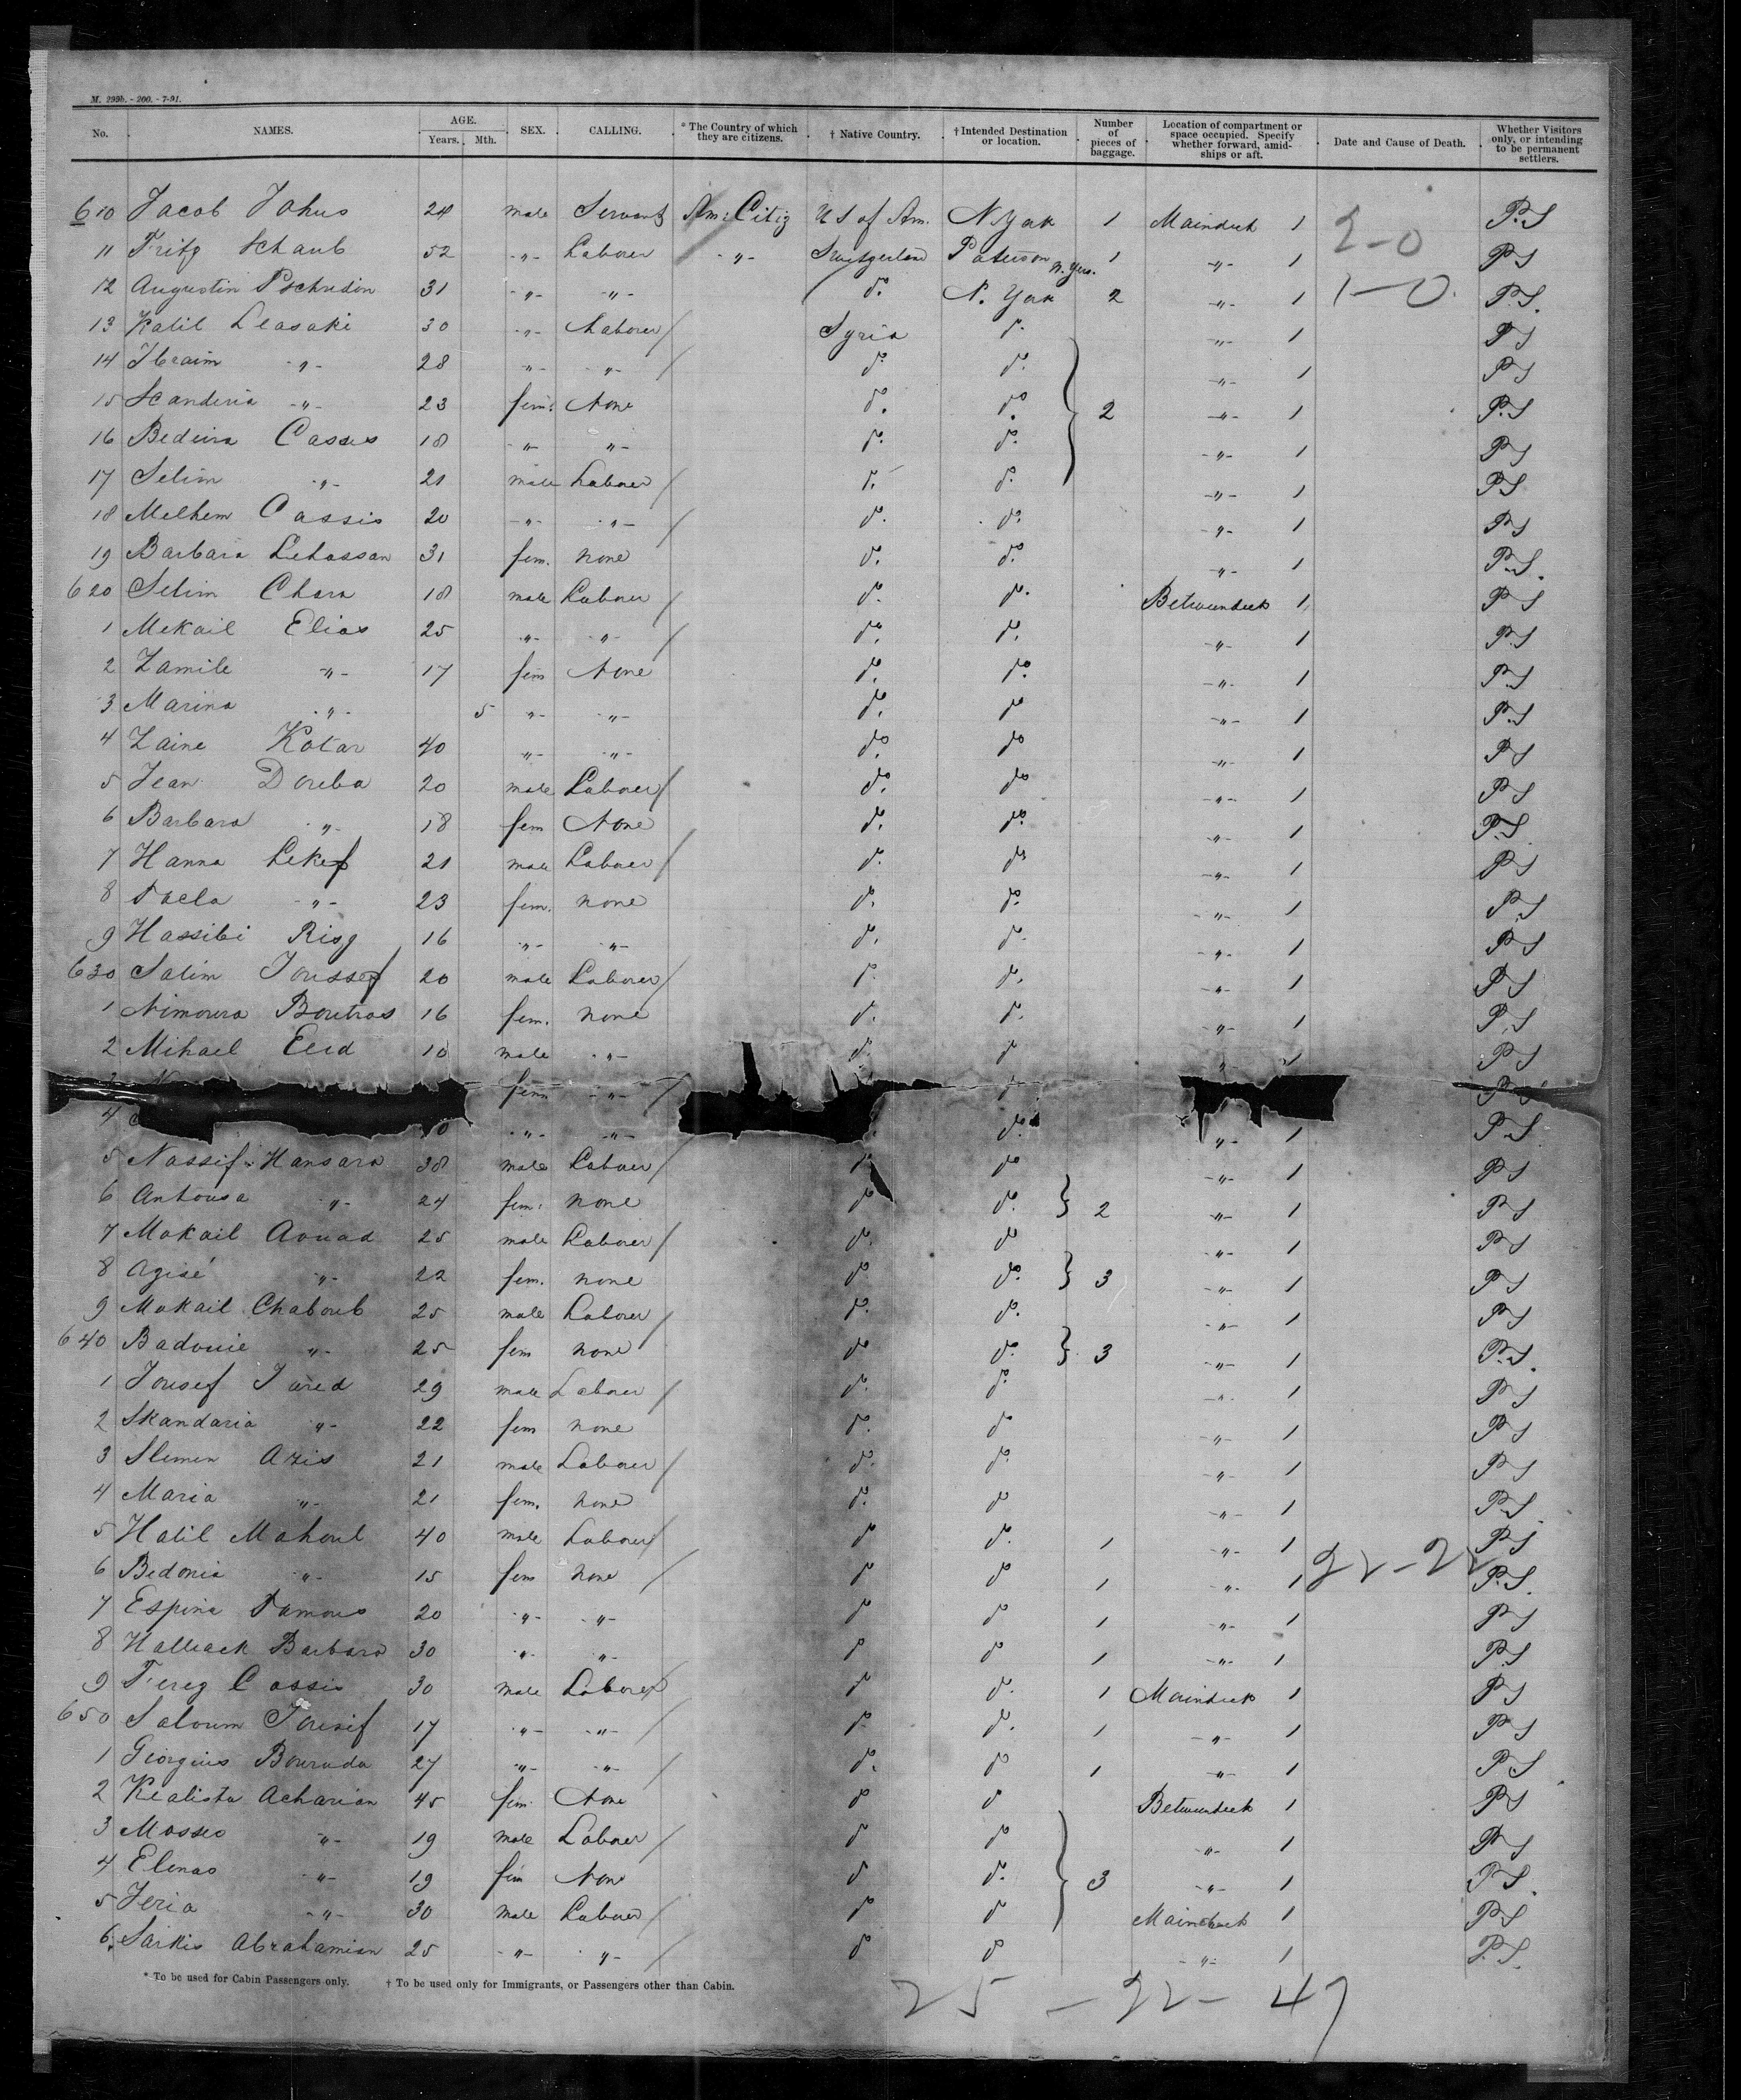 M. 295b. - 200. - 7-91.
No. NAMES. AGE. Years. Mth. SEX. CALLING. * The Country of which they are citizens. † Native Country. † Intended Destination or location. Number of pieces of baggage. Location of compartment or space occupied. Specify whether forward, amidships or aft. Date and Cause of Death. Whether Visitors only, or intending to be permanent settlers.
610 Jacob 24 male Servant Am: Citiz U S of Am. N. York 1 Maindeck 1 2-0 P.S
11 Fritz Schaub 52 -"- Laborer -"- Switzerland Paterson 1 -"- 1 P S
12 Augustin 31 -"- -"- do. N. York 2 -"- 1 1-0 P.S.
13 Kalil Leasaki 30 -"- Laborer / Syria do. -"- 1 P S
14 Ibraim -"- 28 -"- -"- / do. do. -"- 1 P S
15 Scanderia -"- 23 fem: None do. do. 2 -"- 1 P.S
16 Casses 18 -"- -"- do. do. -"- 1 P S
17 Selim -"- 21 male Laborer / do. do. -"- 1 P S
18 Melhem Cassis 20 -"- -"- / do. do. -"- 1 P S
19 Barbara Lehassan 31 fem. none do. do. -"- 1 P.S.
620 Selim Chara 18 male Laborer / do. do. Betweendeck 1 P S
1 Mekail Elias 25 -"- -"- / do. do. -"- 1 P.S
2 Zamile -"- 17 fem None do. do. -"- 1 P.S
3 Marina -"- 5 -"- -"- do. do -"- 1 P.S
4 Zaine Kotar 40 -"- -"- do. do -"- 1 P S
5 Jean Doreba 20 male Laborer / do. do -"- 1 P S
6 Barbara -"- 18 fem None do. do. -"- 1 P.S.
7 Hanna Lekef 21 male Laborer / do. do -"- 1 P S
8 -"- 23 fem. none do. do. -"- 1 P.S
9 Hassibi Risg 16 -"- -"- do. do. -"- 1 P S
630 Salim Joussef 20 male Laborer / do. do. -"- 1 P S
1 Nimoura Boutros 16 fem. none do. do. -"- 1 P.S
2 Mihael Eeid 10 male -"- do. do -"- 1 P S
fem -"- / do P S
4 -"- -"- do. -"- 1 P.S
5 Nassif Hansara 38 male Laborer / do. do -"- 1 P S
6 Antousa -"- 24 fem: none do do. 2 -"- 1 P S
7 Makail Aouad 25 male Laborer / do. do -"- 1 P S
8 Agisé -"- 22 fem. none do do. 3 -"- 1 P S
9 Makail Chaboub 25 male Laborer / do. do. -"- 1 P S
640 Badouie -"- 25 fem none do do. 3 -"- 1 P.S.
1 Jousef Jared 29 male Laborer / do. do. -"- 1 P S
2 Skandaria -"- 22 fem none do. do -"- 1 P S
3 Slemen Azis 21 male Laborer / do. do. -"- 1 P S
4 Maria -"- 21 fem. none do. do -"- 1 P.S.
5 Halil Mahoul 40 male Laborer / do do. 1 -"- 1 P S
6 Bedonia -"- 15 fem none / do do 1 -"- 1 22-22 P.S.
7 Espina Damous 20 -"- -"- do do 1 -"- 1 P S
8 Barbara 30 -"- -"- do do 1 -"- 1 P.S
9 Fereg Cassis 30 male Laborer / do do. 1 Maindeck 1 P S
650 Saloum Jousif 17 -"- -"- / do. do. 1 -"- 1 P S
1 Giorgius Bouruda 27 -"- -"- / do. do 1 -"- 1 P S
2 Kealista Acharian 45 fem. None do do Betweendeck 1 P S
3 Mosses -"- 19 male Laborer / do do -"- 1 P S
4 Elenas -"- 19 fem None do do. 3 -"- 1 P.S.
5 Jeria -"- 30 male Laborer / do do Maindeck 1 P S
6. Sarkis Abrahamian 25 -"- -"- / do do -"- 1 P.S.
* To be used for Cabin Passengers only. † To be used only for Immigrants, or Passengers other than Cabin.
25 - 22 - 47